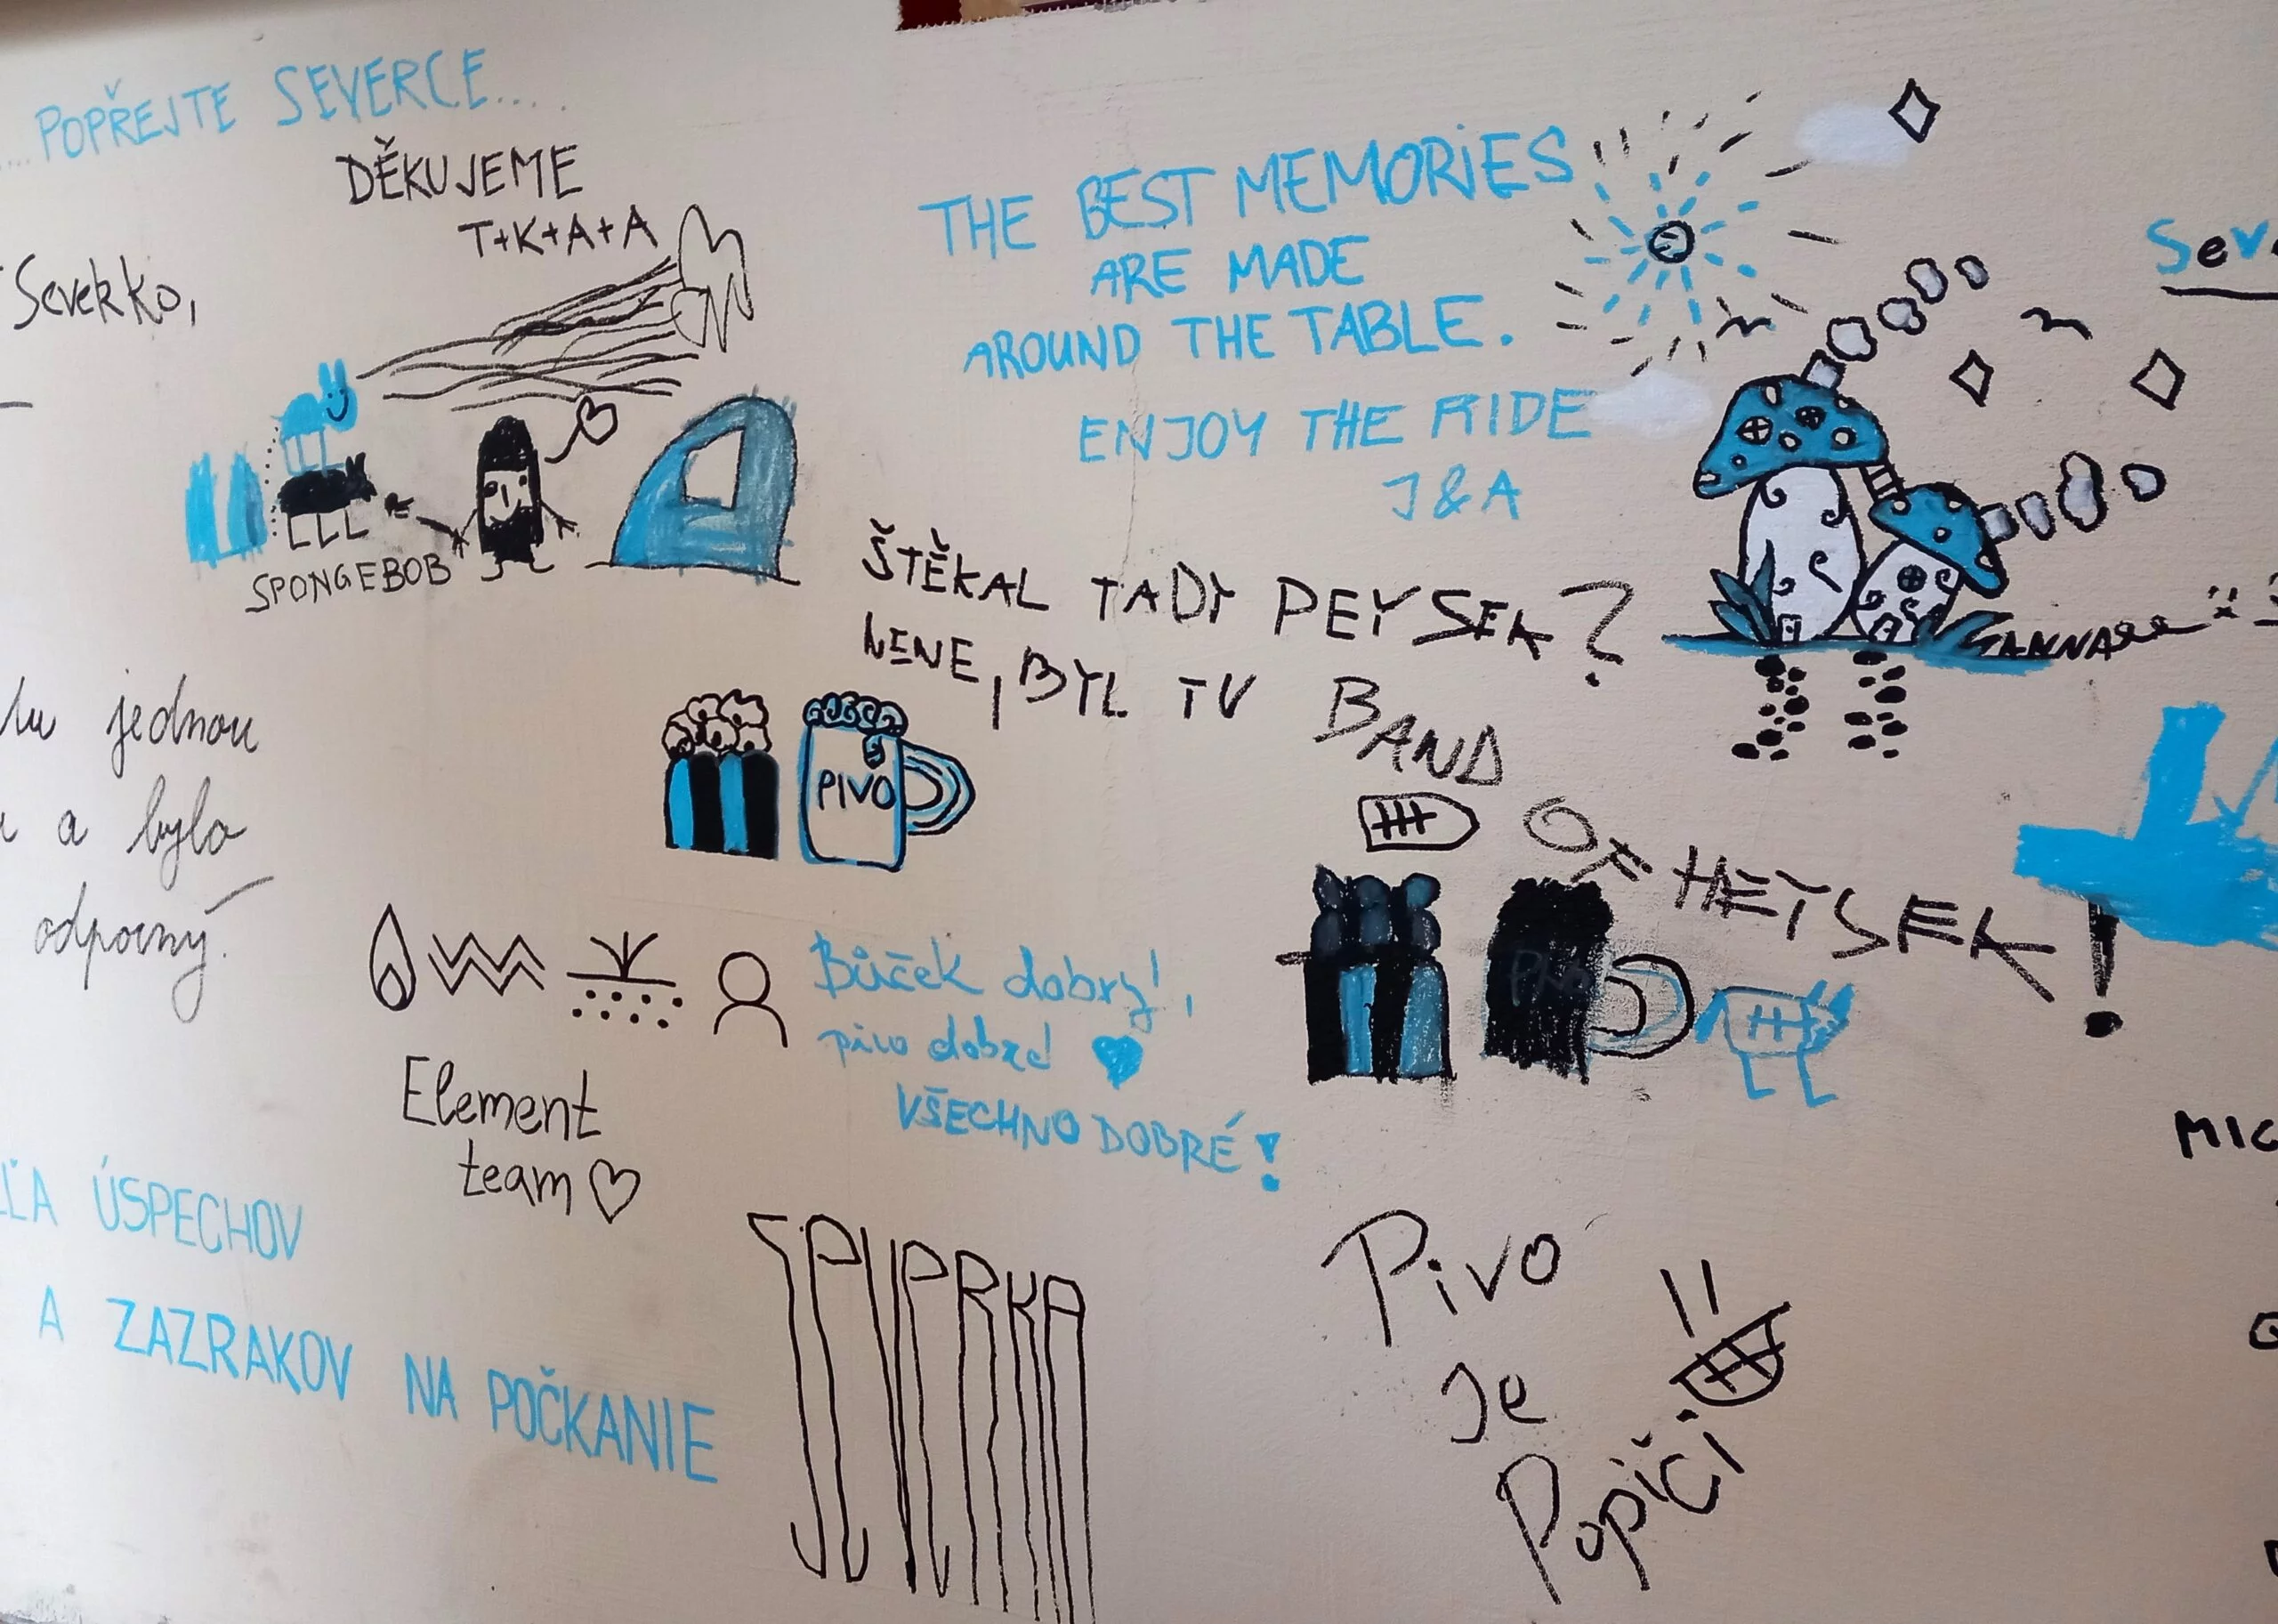 ...POPŘEJTE SEVERCE....
DĚKUJEME
T+K+A+A
Severko,
SPONGEBOB
THE BEST MEMORIES
ARE MADE
AROUND THE TABLE.
ENJOY THE RIDE
J&A
ŠTĚKAL TADY PEYSEK?
NENE, BYL TU BAND
OF HEYSEK!
ANNA
PIVO
jednou
a bylo
odporný.
Element
team
Bůček dobrý!,
pivo dobré
VŠECHNO DOBRÉ!
ÚSPECHOV
A ZAZRAKOV NA POČKANIE
Pivo
Je
Popiči